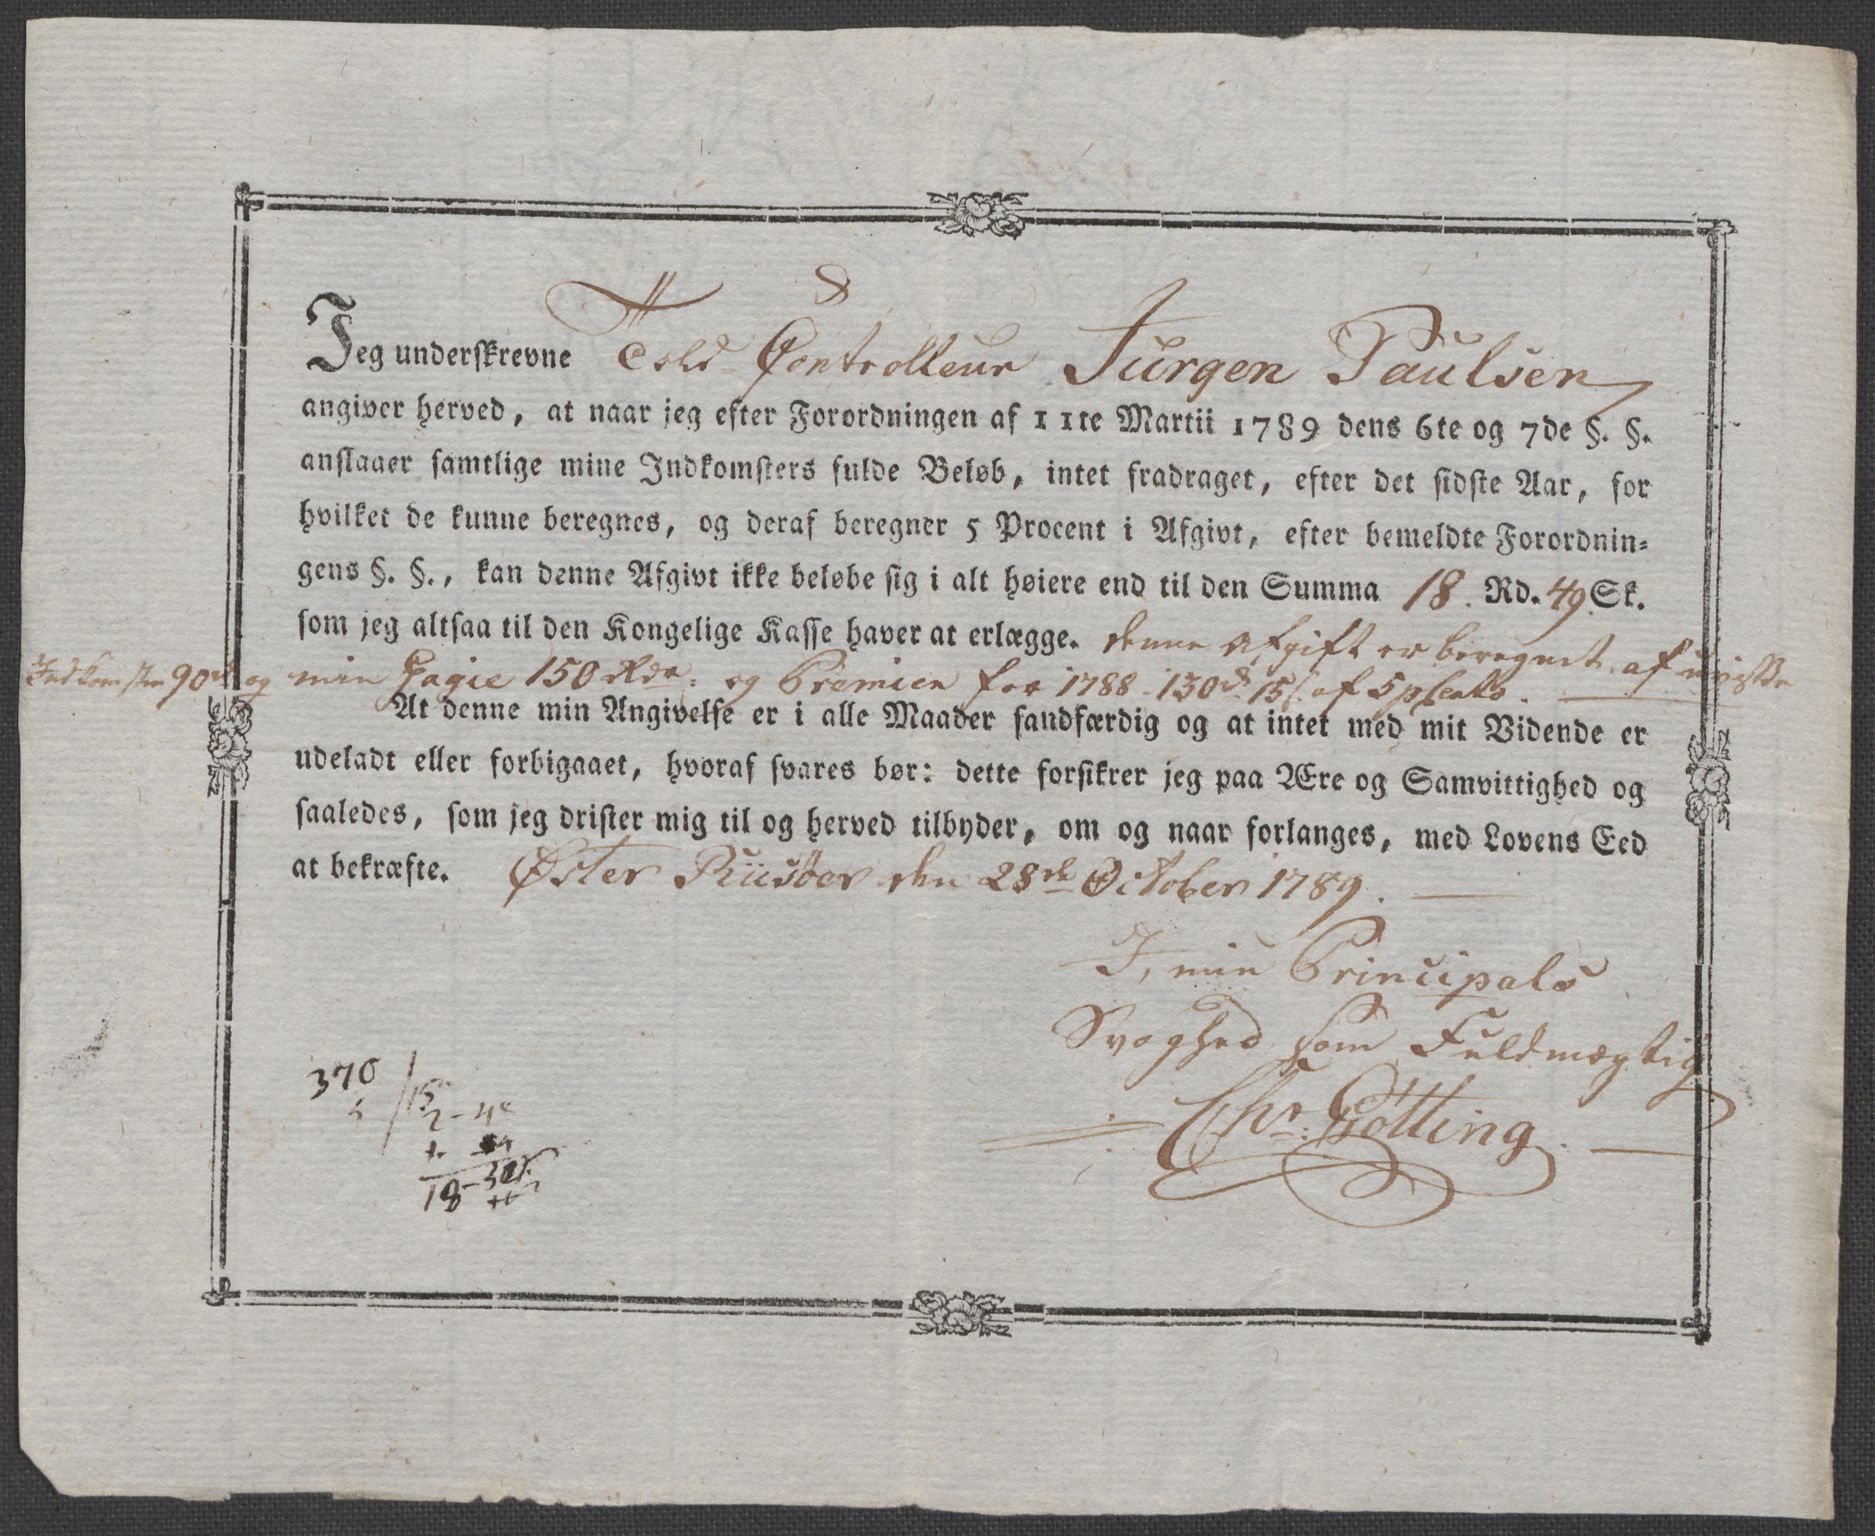 Jeg underskrevne Told-Controlleur Jürgen Paulsen
angiver herved, at naar jeg efter Forordningen af 11te Martii 1789 dens 6te og 7de §. §.
anslaaer samtlige mine Indkomsters fulde Beløb, intet fradraget, efter det sidste Aar, for
hvilket de kunne beregnes, og deraf beregner 5 Procent i Afgivt, efter bemeldte Forordnin=
gens §. §., kan denne Afgivt ikke beløbe sig i alt høiere end til den Summa 18. Rd. 49 Sk.
som jeg altsaa til den Kongelige Kasse haver at erlægge. denne Afgift er beregnet af uvisse
Indkomster 90rd og min Gagie 150 Rdr: og Premien for 1788 - 130rd 15s. af 5 pCento.
At denne min Angivelse er i alle Maader sandfærdig og at intet med mit Vidende er
udeladt eller forbigaaet, hvoraf svares bør: dette forsikrer jeg paa Ære og Samvittighed og
saaledes, som jeg drister mig til og herved tilbyder, om og naar forlanges, med Lovens Eed
at bekræfte. Øster Riisöer den 28de October 1789.
I, min Principals
Svaghed som Fuldmægtig
Chr. Götting.
370
5 / 15
18-